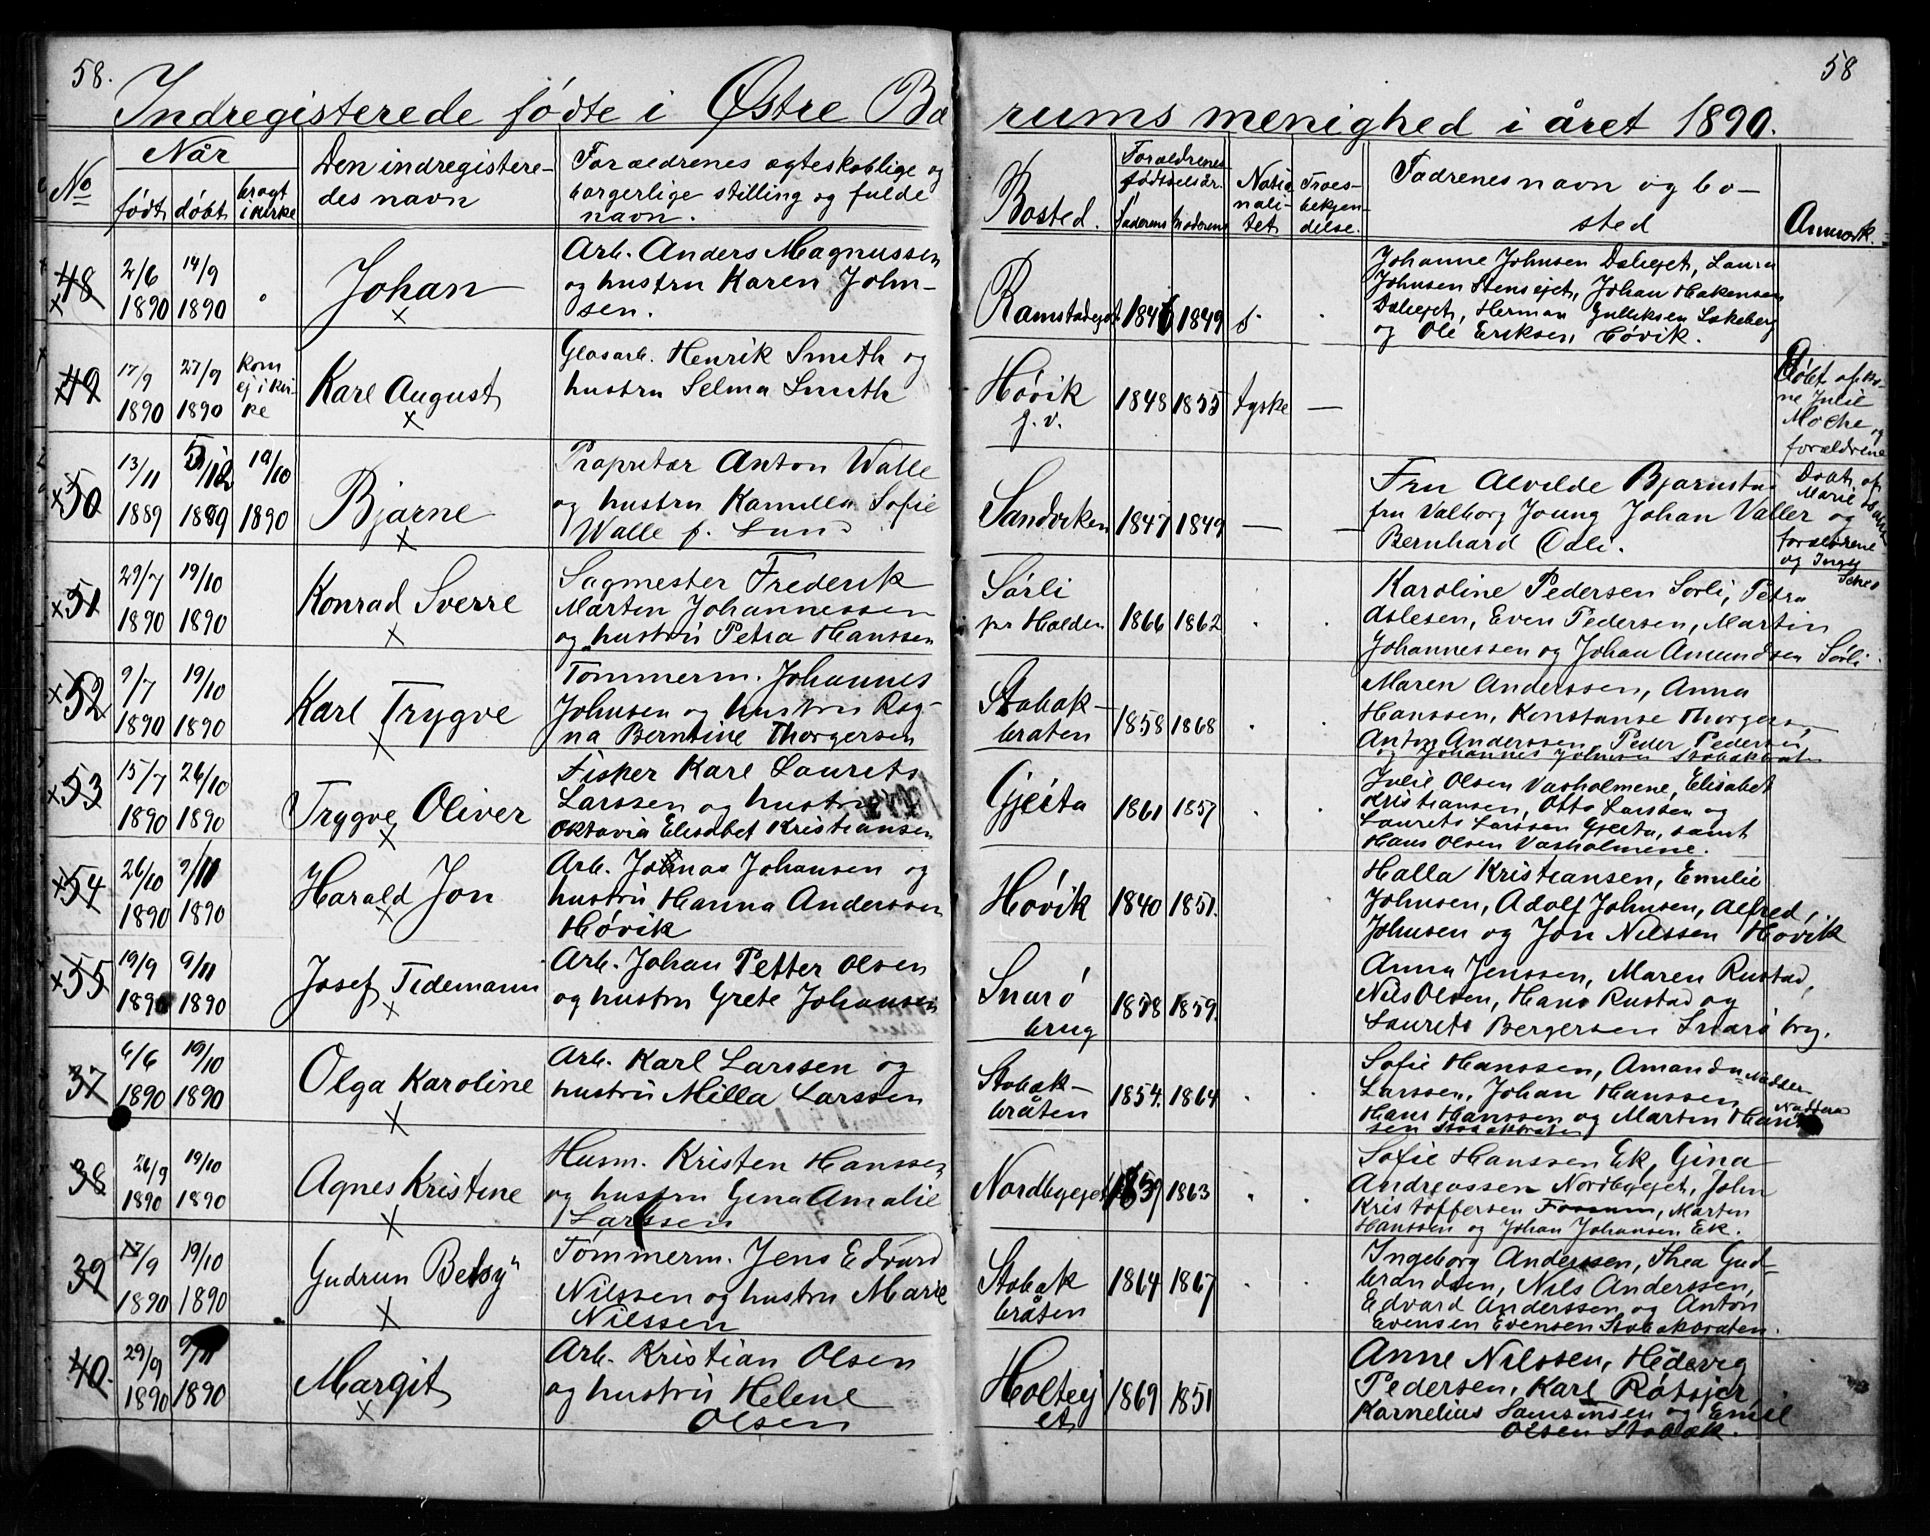 58.
58
Indregisterede fødte i Østre Bærums menighed i året 1890.
No
Når
født
døbt
bragt i kirke
Den indregisteredes navn
Foræeldrenes ægteskablige og borgerlige stilling og fulde navn.
Bosted.
Forældrenes fødselsår.
Faderens
Moderens
Nationalitet
Troesbekjendelse.
Fadrenes navn og bosted
Anmærk.
48
2/6 1890
14/9 1890
Johan
Arb. Anders Magnussen
og hustru Karen John-
sen.
Ramstadejet
1846
1849
Johanne Johnsen Dalejet, Laura
Johnsen Stensejet, Johan Hakensen
Dalejet, Herman Gulliksen
og Ole Eriksen, Høvik.
49
17/9 1890
27/9 1890
kom ej i kirke
Karl August
Glasarb. Henrik Smith og
hustru Selma Smith
Høvik
j. v.
1848
1855
tyske
—
Døbt af ko-
ne Julie
og
forældrene
x50
13/11 1889
5/12 1889
19/10 1890
Bjarne
Propritær Anton Walle
og hustru Kamilla Sofie
Walle f. Lund
Sandviken
1847
1849
—
—
Fru Alvilde Bjarnsta
fru Valborg Joung Johan Valler og
Bernhard
Døbt af
Marie
forældrene
og
x51
29/7 1890
19/10 1890
Konrad Sverre
Sagmester Frederik
Marten Johannessen
og hustru Petra Hanssen
Sørli
pr Halden
1866
1862
Karoline Pedersen Sørli, Petra
Aslesen, Even Pedersen, Martin
Johannessen og Johan Amundsen Sørli.
x52
9/7 1890
19/10 1890
Karl Trygve
Tømmerm. Johannes
Johnsen og hustru Rag-
na Berntine Thorgersen
Stabak-
braten
1858
1868
Maren Anderssen, Anna
Hanssen, Konstanse Thorgersen
Anton Anderssen, Peder Pedersen
og Johannes Johnsen Stabakbraten
x53
15/7 1890
26/10 1890
Trygve Oliver
Fisker Karl Laurets
Larssen og hustru
Oktavia Elisabet Kristiansen
Gjeita
1861
1857
Julie Olsen Vasholmene, Elisabet
Kristiansen, Otto Larssen og
Laurets Larssen Gjeita, samt
Hans Olsen Vasholmene.
x54
26/10 1890
9/11 1890
Harald Jon
Arb. Johnas Johansen og
hustru Hanna Anderssen
Høvik
Høvik
1840
1851.
Halla Kristiansen, Emilie
Johnsen, Adolf Johnsen, Alfred
Johnsen og Jon Nilssen Høvik
x55
19/9 1890
9/11 1890
Josef Tidemann
Arb. Johan Petter Olsen
og hustru Grete Johansen
Snarø
brug
1858
1859.
Anna Jenssen, Maren Rustad,
Nils Olsen, Hans Rustad og
Laurets Bergersen Snarøbrg.
37
6/6 1890
19/10 1890
Olga Karoline
Arb. Karl Larssen og
hustru Milla Larssen
Stabæk-
bråten
1854.
1864
Sofie Hanssen, Amanda
Larssen, Johan Hanssen
Hans Hanssen og Marten Hans-
sen Stabækbråten
38
26/9 1890
19/10 1890
Agnes Kristine
Husm. Kristen Hanssen
og hustru Gina Amalie
Larssen
Nordbyejet
1859
1863
Sofie Hanssen Ek, Gina
Andreassen Nordbyejet, John
Kristoffersen Fossum, Marten
Hanssen og Johan Johansen Ek.
39
17/9 1890
19/10 1890
Gudrun Betsy
Tømmerm. Jens Edvard
Nilssen og hustru Marie
Nilssen
Stabæk
bråten
1864
1867
Ingeborg Anderssen, Thea Gud-
brandsen, Nils Anderssen,
Edvard Anderssen og Anton
Evensen Evensen Stabækbraten.
40.
29/9 1890
9/11 1890
Margit
Arb. Kristian Olsen
og hustru Helene
Olsen
Holtej
et
1869
1851
Anne Nilssen, Hedevig
Pedersen, Karl
Karnelius Samsonsen og Emil
Olsen Stabæk.